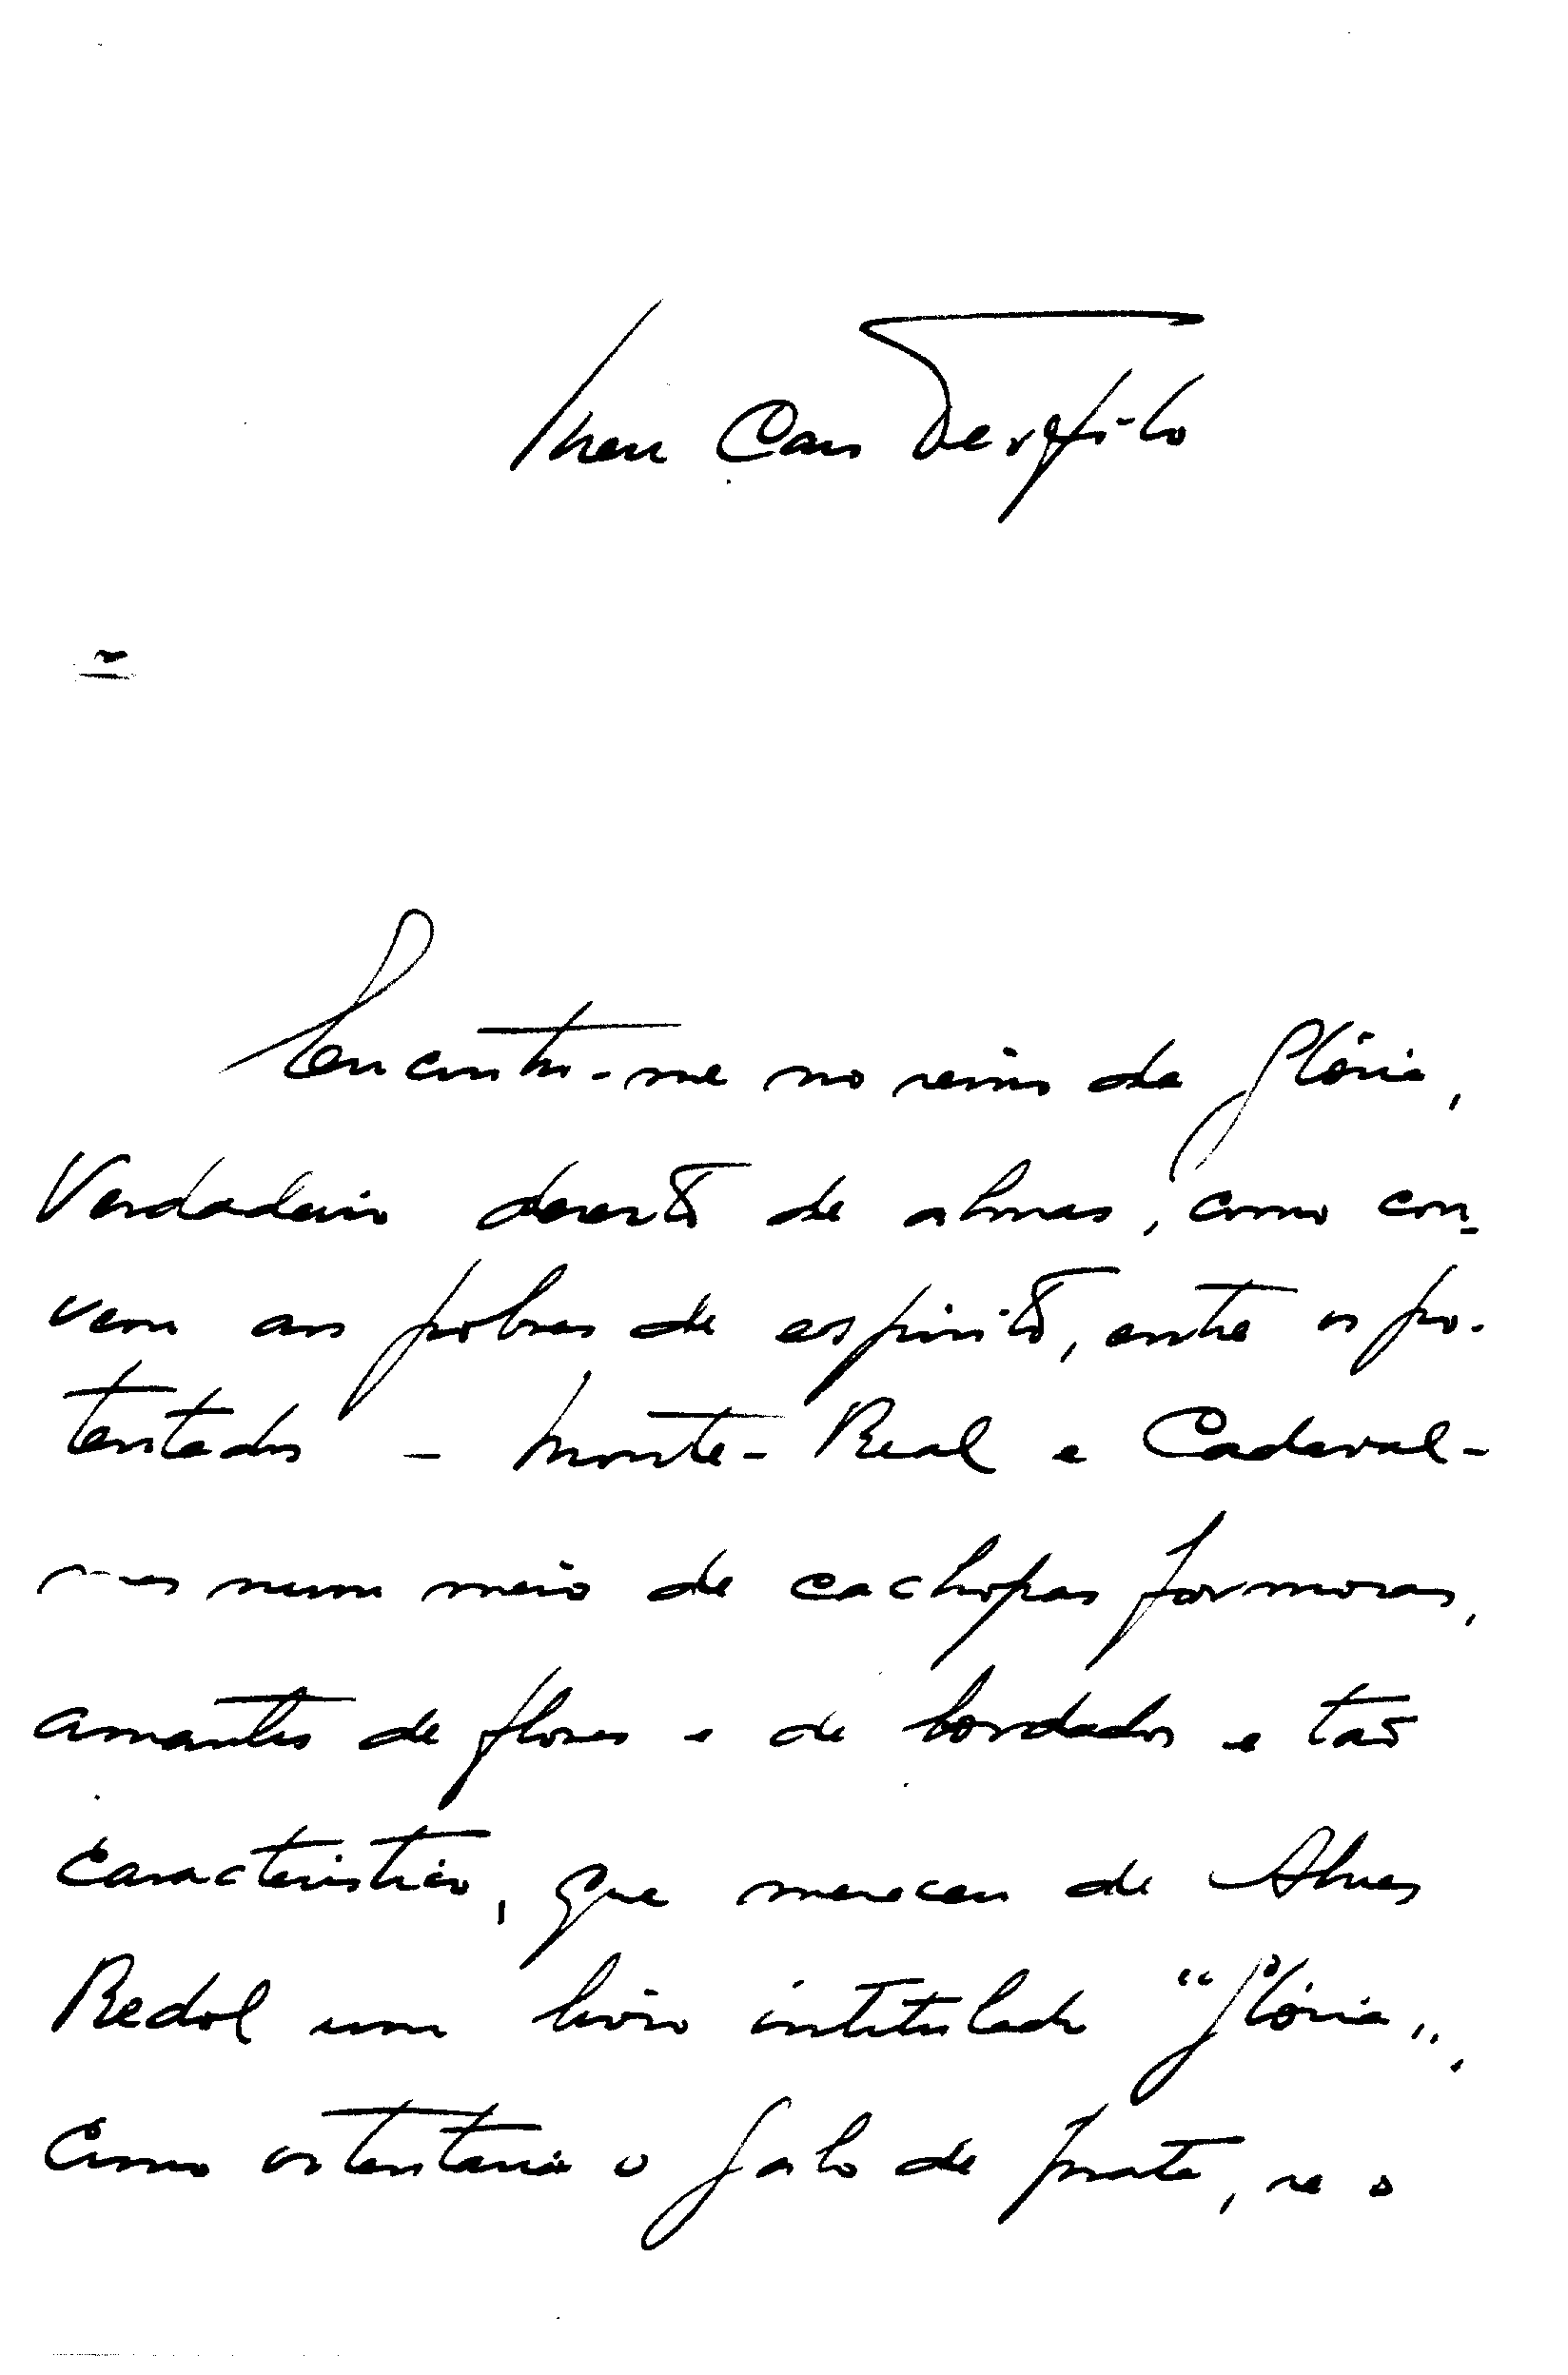 Meu Caro Teófilo
Encontro-me no reino da Glória,
Verdadeiro deserto de almas, como con-
vem aos pobres de espirito, entre os po-
tentados - Monte-Real e Cadaval -
mas num meio de cachopas formosas,
amantes de flores e de bordados e tão
caracteristico, que mereceu de Alves
Redol um livro intitulado "Glória".
Como ostentaria o galo de prata, se o